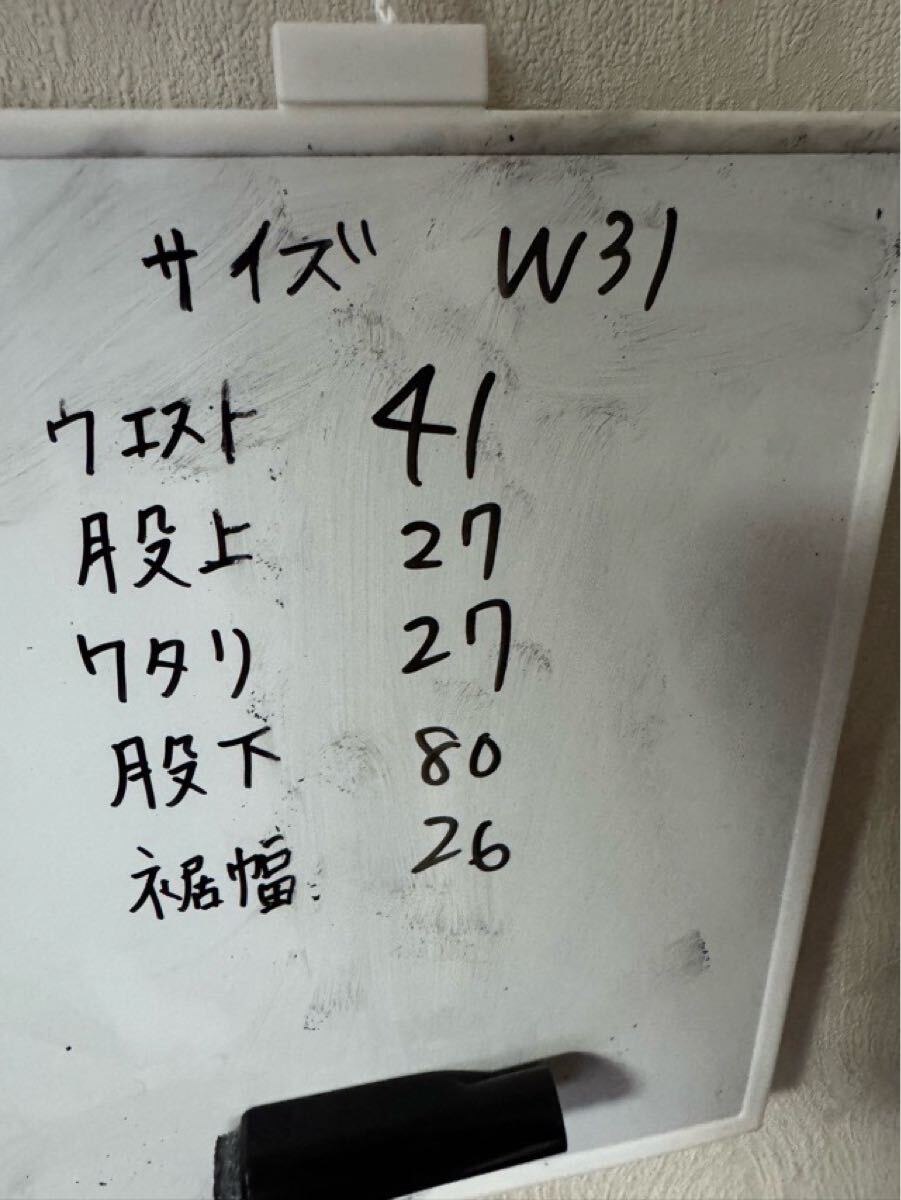 サイズ W31
ウエスト 41
股上 27
ワタリ 27
股下 80
裾幅 26